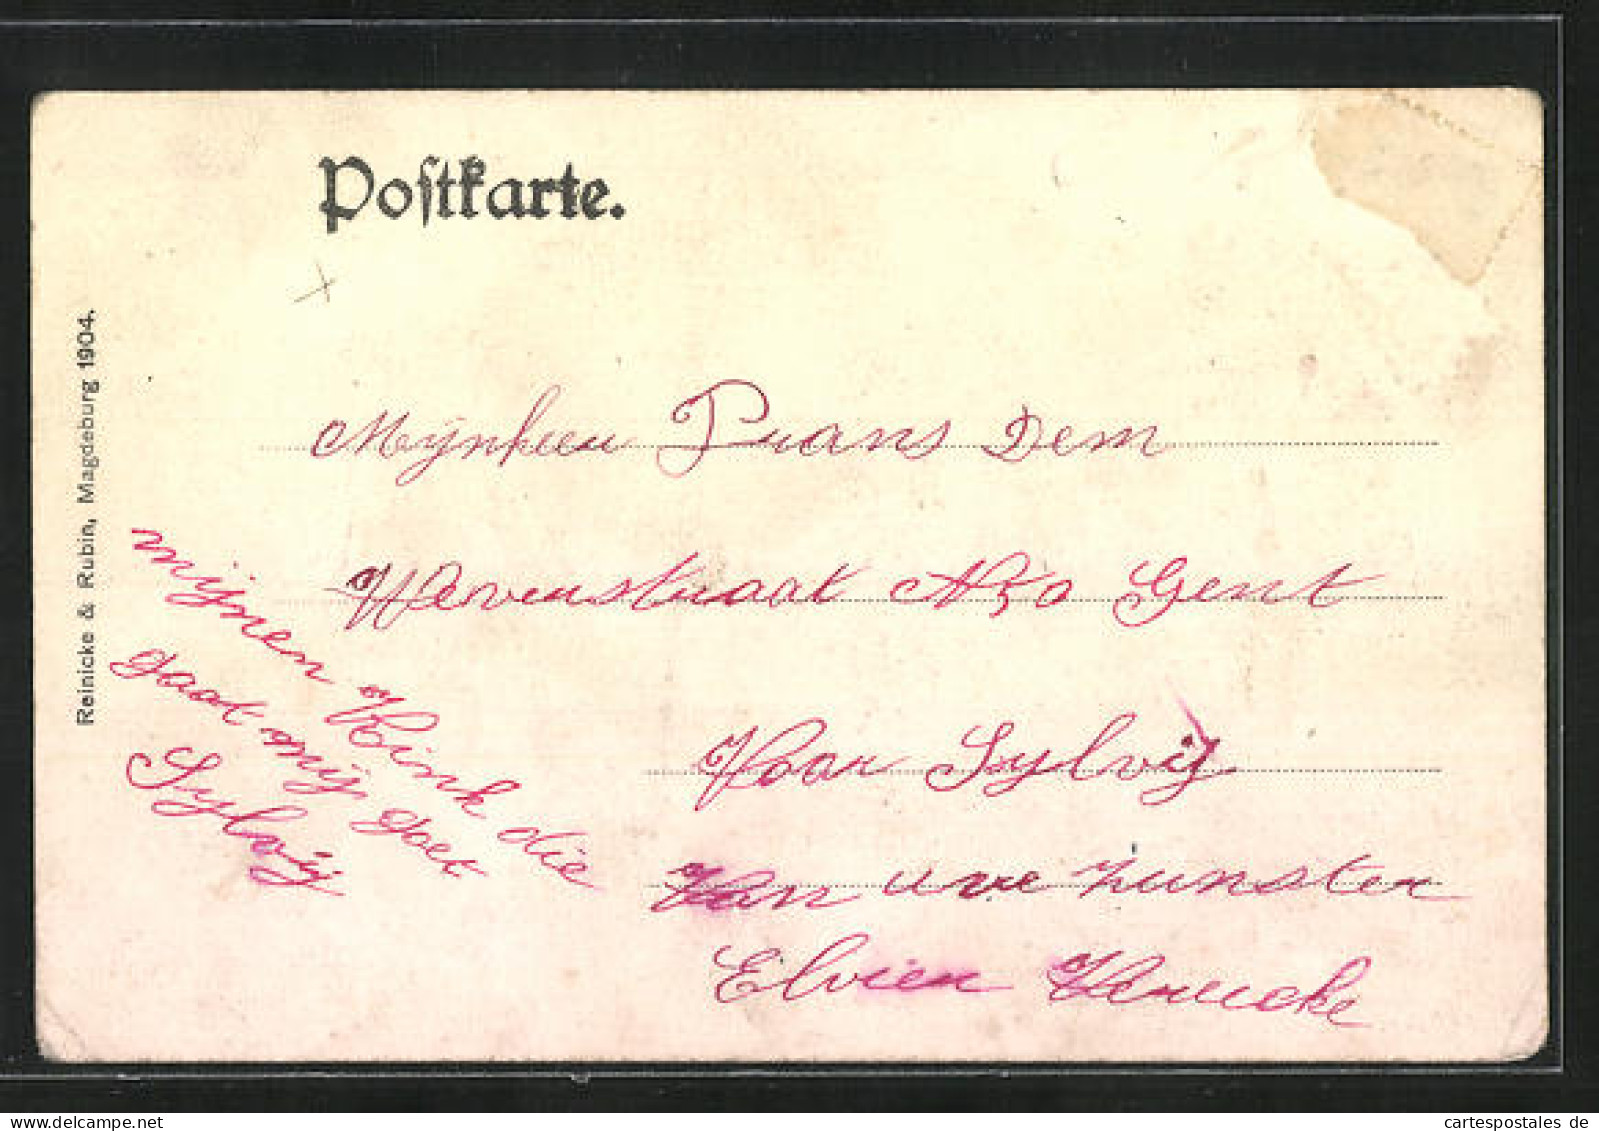 Postkarte.
Reinicke & Rubin, Magdeburg 1904.
Mijnheer Frans Dem
Weverstraat No 50 Gent
Voor Sylvij
Van uwe zunster
Elvier Vermeke
mijnen Kink die
gaat mij goet
Sylvij
cartespostales de